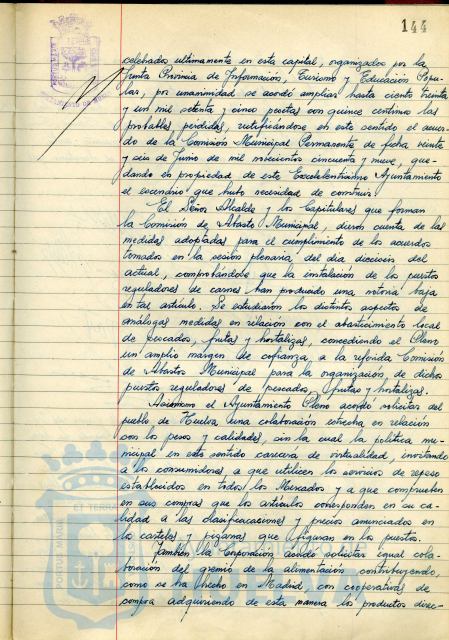 144
celebrados ultimamente en esta capital, organizados por la
Junta Provincia de Información, Turismo y Educación Popu-
lar, por unanimidad se acordó ampliar hasta ciento treinta
y un mil setenta y cinco pesetas con quince centimos las
probables perdidas, rectificándose en este sentido el acuer-
do de la Comisión Municipal Permanente de fecha veinte
y seis de Junio de mil novecientos cincuenta y nueve, que-
dando en propiedad de este Excelentísimo Ayuntamiento
el escenario que hubo necesidad de construir.
El Señor Alcalde y los Capitulares que forman
la Comisión de Abasto Municipal, dieron cuenta de las
medidas adoptadas para el cumplimiento de los acuerdos
tomados en la sesión plenaria del dia dieciseis del
actual, comprobándose que la instalación de los puestos
reguladores de carnes han producido una notoria baja
en tal articulo. Se estudiaron los distintos aspectos de
análogas medidas en relación con el abastecimiento local
de pescados, frutas y hortalizas, concediendo el Pleno
un amplio margen de confianza a la referida Comisión
de Abastos Municipal para la organización de dichos
puestos reguladores de pescados, frutas y hortalizas.
Asimismo el Ayuntamiento Pleno acordó solicitar del
pueblo de Huelva una colaboración estrecha en relación
con los pesos y calidades, sin la cual la política mu-
nicipal en este sentido careceria de virtualidad, invitando
a los consumidores a que utilicen los servicios de repeso
establecidos en todos los Mercados y a que comprueben
en sus compras que los artículos corresponden en su ca-
lidad a las clasificacaciones y precios anunciados en
los carteles y pizarras que figuran en los puestos.
Tambien la Corporación acordó solicitar igual cola-
boración del gremio de la alimentación contribuyendo,
como se ha hecho en Madrid, con cooperativas de
compra adquiriendo de esta manera los productos direc-